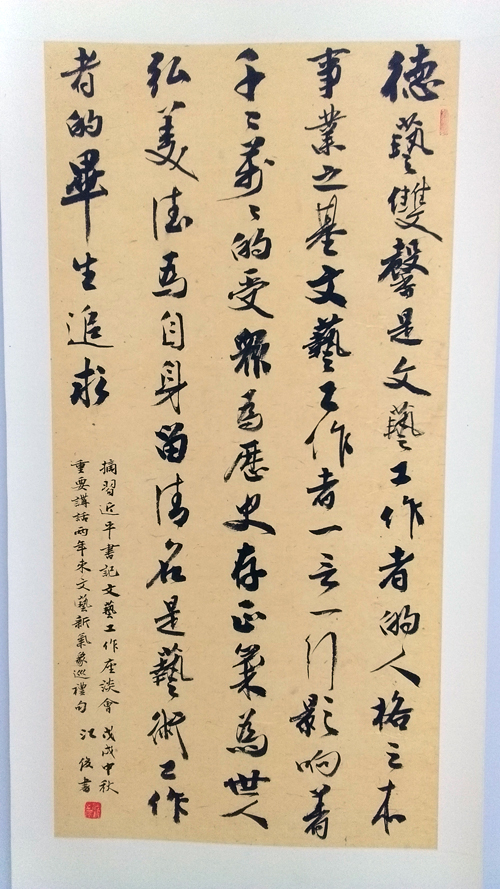 德藝雙馨是文藝工作者的人格之本
事業之基文藝工作者一言一行影响着
千千萬萬的受眾為歷史存正氣為世人
弘美德為自身留清名是藝術工作
者的畢生追求
摘習近平書記文藝工作座談會
重要講話兩年來文藝新氣象巡禮句
戊戌中秋
江俊書